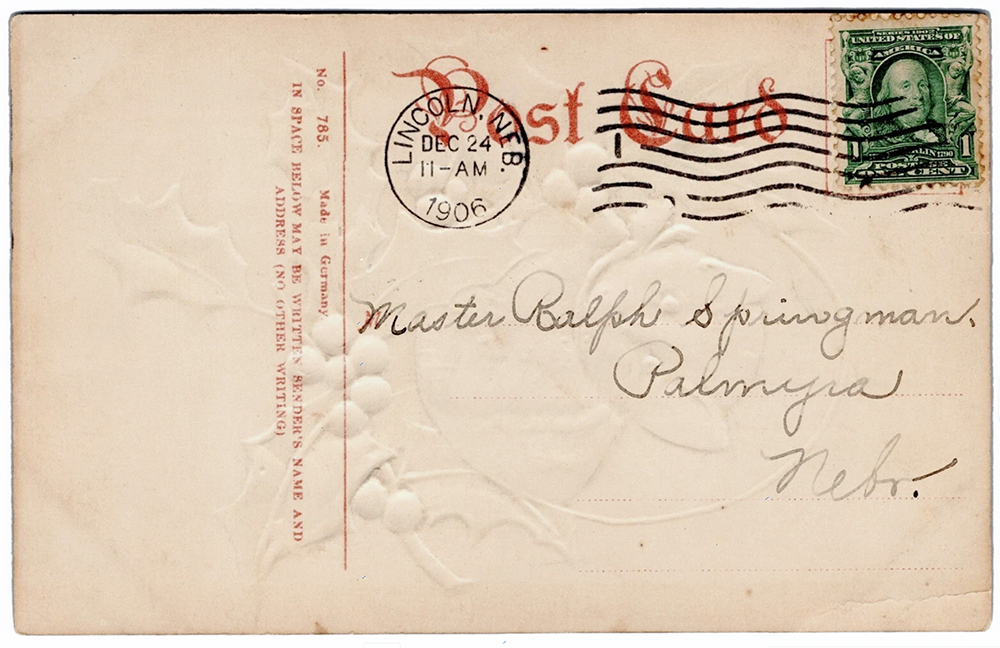 Post Card
LINCOLN, NEB.
DEC 24
11-AM
1906
SERIES 1902
UNITED STATES OF
AMERICA
1 1
POSTAGE
ONE CENT
No. 785. Made in Germany
IN SPACE BELOW MAY BE WRITTEN SENDER'S NAME AND
ADDRESS (NO OTHER WRITING)
Master Ralph Springman.
Palmyra
Nebr.